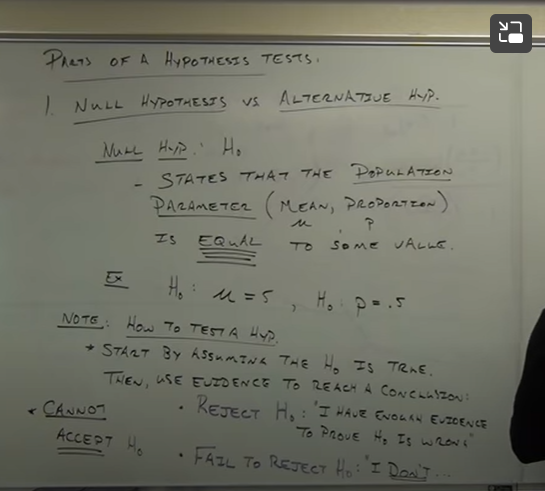 PARTS OF A HYPOTHESIS TESTS.
1. NULL HYPOTHESIS VS ALTERNATIVE HYP.
NULL HYP: H₀
- STATES THAT THE POPULATION
PARAMETER (MEAN, PROPORTION)
μ p
IS EQUAL TO SOME VALUE.
EX H₀: μ = 5, H₀: p = .5
NOTE: HOW TO TEST A HYP.
* START BY ASSUMING THE H₀ IS TRUE.
THEN, USE EVIDENCE TO REACH A CONCLUSION:
* CANNOT
ACCEPT H₀
• REJECT H₀: "I HAVE ENOUGH EVIDENCE
TO PROVE H₀ IS WRONG"
• FAIL TO REJECT H₀: "I DON'T...